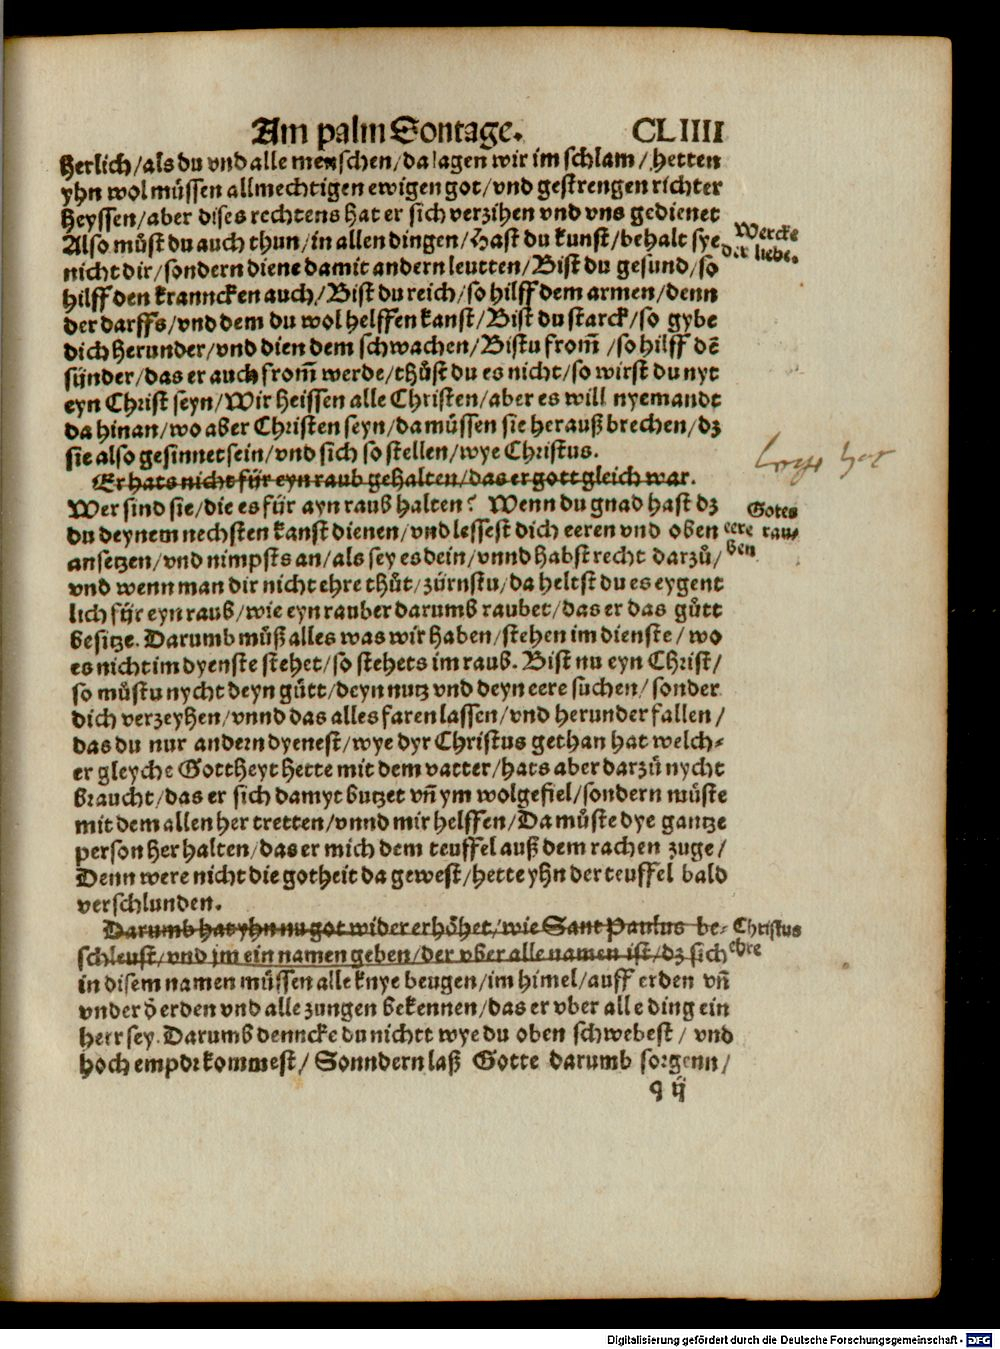 Am palm Sontage. CLIIII
herlich/als du vnd alle menschen/da lagen wir im schlam/hetten
yhn wol müssen allmechtigen ewigen got/vnd gestrengen richter
heyssen/aber dises rechtens hat er sich verzihen vnd vns gedienet
Also mů̈st du auch thun/in allen dingen/Hast du kunst/behalt sye
nicht dir/sondern diene damit andern leutten/Bist du gesund/so
hilff den krannken auch/Bist du reich/so hilff dem armen/denn
der darffs/vnd dem du wol helffen kanst/Bist du starck/so gybe
dich herunder/vnd dien dem schwachen/Bistu from̃ /so hilff dẽ
sünder/das er auch from̃ werde/thůst du es nicht/so wirst du nyt
eyn Christ seyn/Wir heissen alle Christen/aber es will nyemandt
da hinan/wo aber Christen seyn/da müssen sie herauß brechen/dz
sie also gesinnet sein/vnd sich so stellen/wye Christus.
Er hats nicht für eyn raub gehalten/das er gott gleich war.
Wer sind sie/die es für ayn raub halten? Wenn du gnad hast dz
du deynem nechsten kanst dienen/vnd lessest dich eeren vnd oben
ansetzen/vnd nimpsts an/als sey es dein/vnnd habst recht darzů/
vnd wenn man dir nicht ehre thůt/zürnstu/da heltst du es eygent
lich für eyn raub/wie eyn rauber darumb raubet/das er das gůtt
besitze. Darumb můß alles was wir haben/stehen im dienste/wo
es nicht im dyenste stehet/so stehets im raub. Bist nu eyn Christ/
so můstu nycht deyn gůtt/deyn nutz vnd deyn eere suchen/sonder
dich verzeyhen/vnnd das alles faren lassen/vnd herunder fallen/
das du nur andern dyenest/wye dyr Christus gethan hat welch-
er gleyche Gottheyt hette mit dem vatter/hats aber darzů nycht
braucht/das er sich damyt butzet vñ ym wolgefiel/sondern můste
mit dem allen her tretten/vnnd mir helffen/Da můste dye gantze
person her halten/das er mich dem teuffel auß dem rachen zuge/
Denn were nicht die gotheit da gewest/hette yhn der teuffel bald
verschlunden.
Darumb hat yhn nu got wider erhöhet/wie Sant Paulus be-
schleust/vnd jm ein namen geben/der vber alle namen ist/dz sich
in disem namen müssen alle knye beugen/im himel/auff erden vñ
vnder d̄ erden vnd alle zungen bekennen/das er vber alle ding ein
herr sey. Darumb denncke du nichtt wye du oben schwebest/ vnd
hoch empor kommest/ Sonndern laß Gotte darumb sorgenn/
q ij
Wercke
der liebe.
Gotes
eere rau-
ben
Christus
ehre
Digitalisierung gefördert durch die Deutsche Forschungsgemeinschaft - DFG